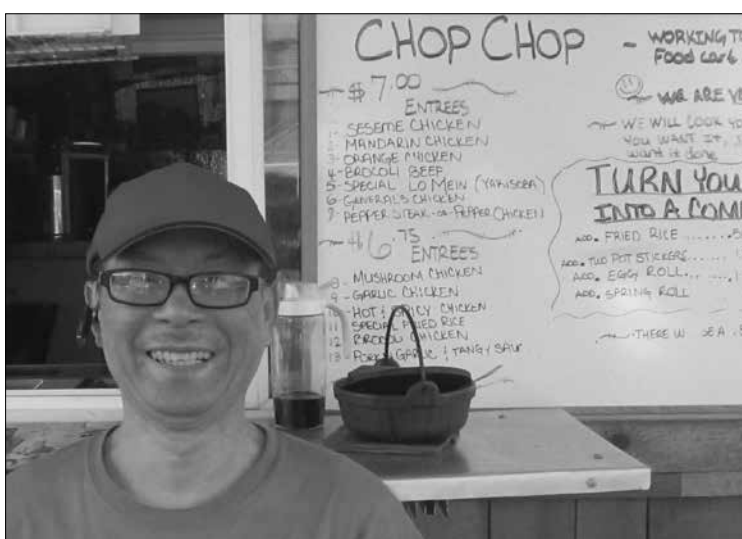 CHOP CHOP
$7.00
ENTREES
1- SESEME CHICKEN
2- MANDARIN CHICKEN
3- ORANGE CHICKEN
4- BROCOLI BEEF
5- SPECIAL LO MEIN (YAKISOBA)
6- GENERAL'S CHICKEN
7- PEPPER STEAK -or- PEPPER CHICKEN
$6.75
ENTREES
8- MUSHROOM CHICKEN
9- GARLIC CHICKEN
10- HOT & SPICY CHICKEN
11 SPECIAL FRIED RICE
12 BROCOLI CHICKEN
13- PORK, GARLIC & TANGY SAUC
- WORKING TO
Food cart
WE ARE YO
WE WILL COOK YO
YOU WANT IT,
want it done
TURN YOU
INTO A COM
ADD. FRIED RICE
ADD. TWO POT STICKERS
ADD. EGG ROLL
ADD. SPRING ROLL
THERE